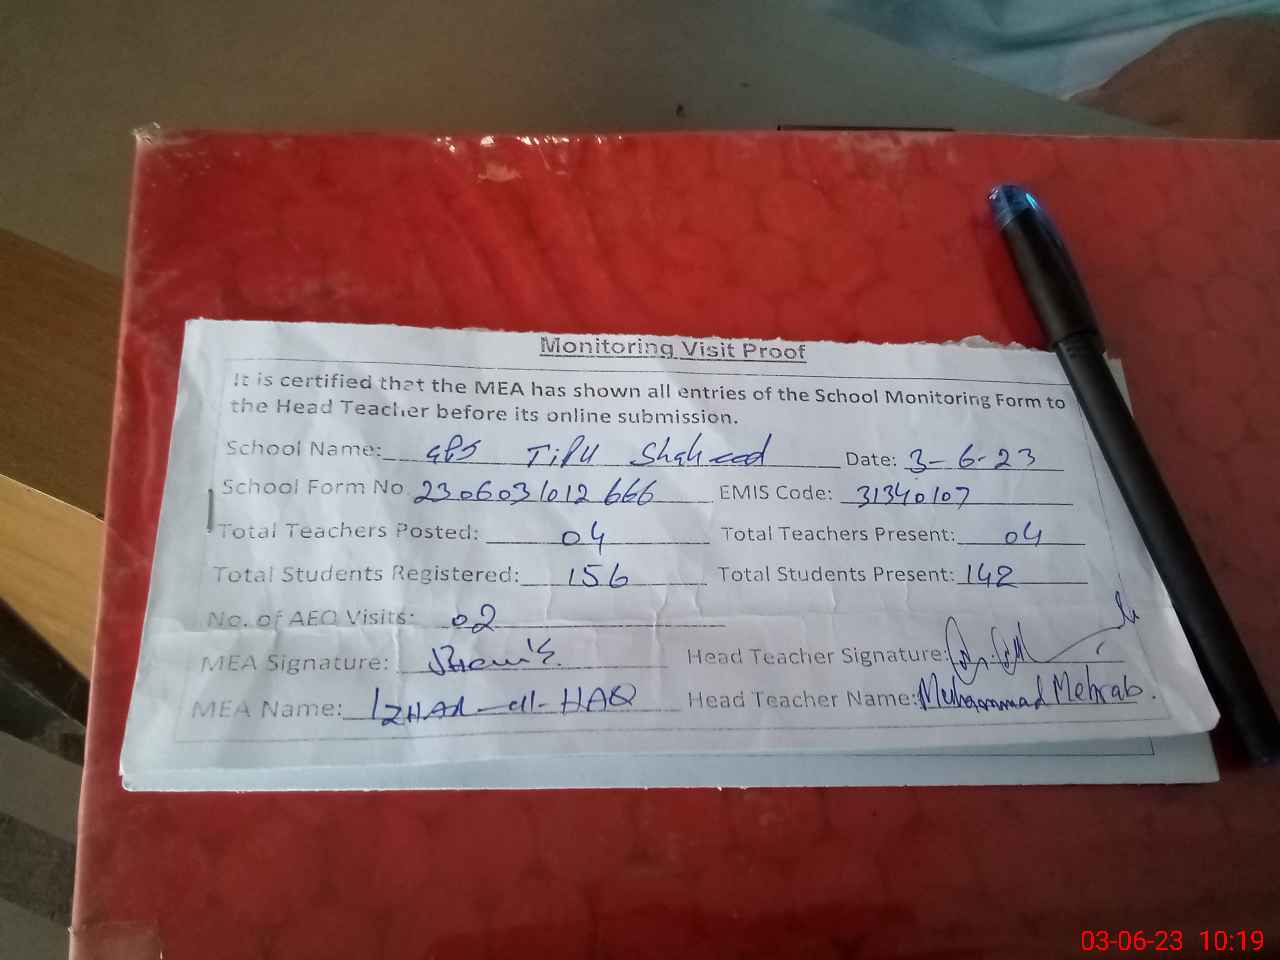 Monitoring Visit Proof
It is certified that the MEA has shown all entries of the School Monitoring Form to
the Head Teacher before its online submission.
School Name: GPS Tipu Shaheed Date: 3-6-23
School Form No. 2306031012666 EMIS Code: 31340107
Total Teachers Posted: 04 Total Teachers Present: 04
Total Students Registered: 156 Total Students Present: 142
No. of AEO Visits: 02
MEA Signature: Head Teacher Signature:
MEA Name: IZHAR-ul-HAQ Head Teacher Name: Muhammad Mehrab.
03-06-23 10:19